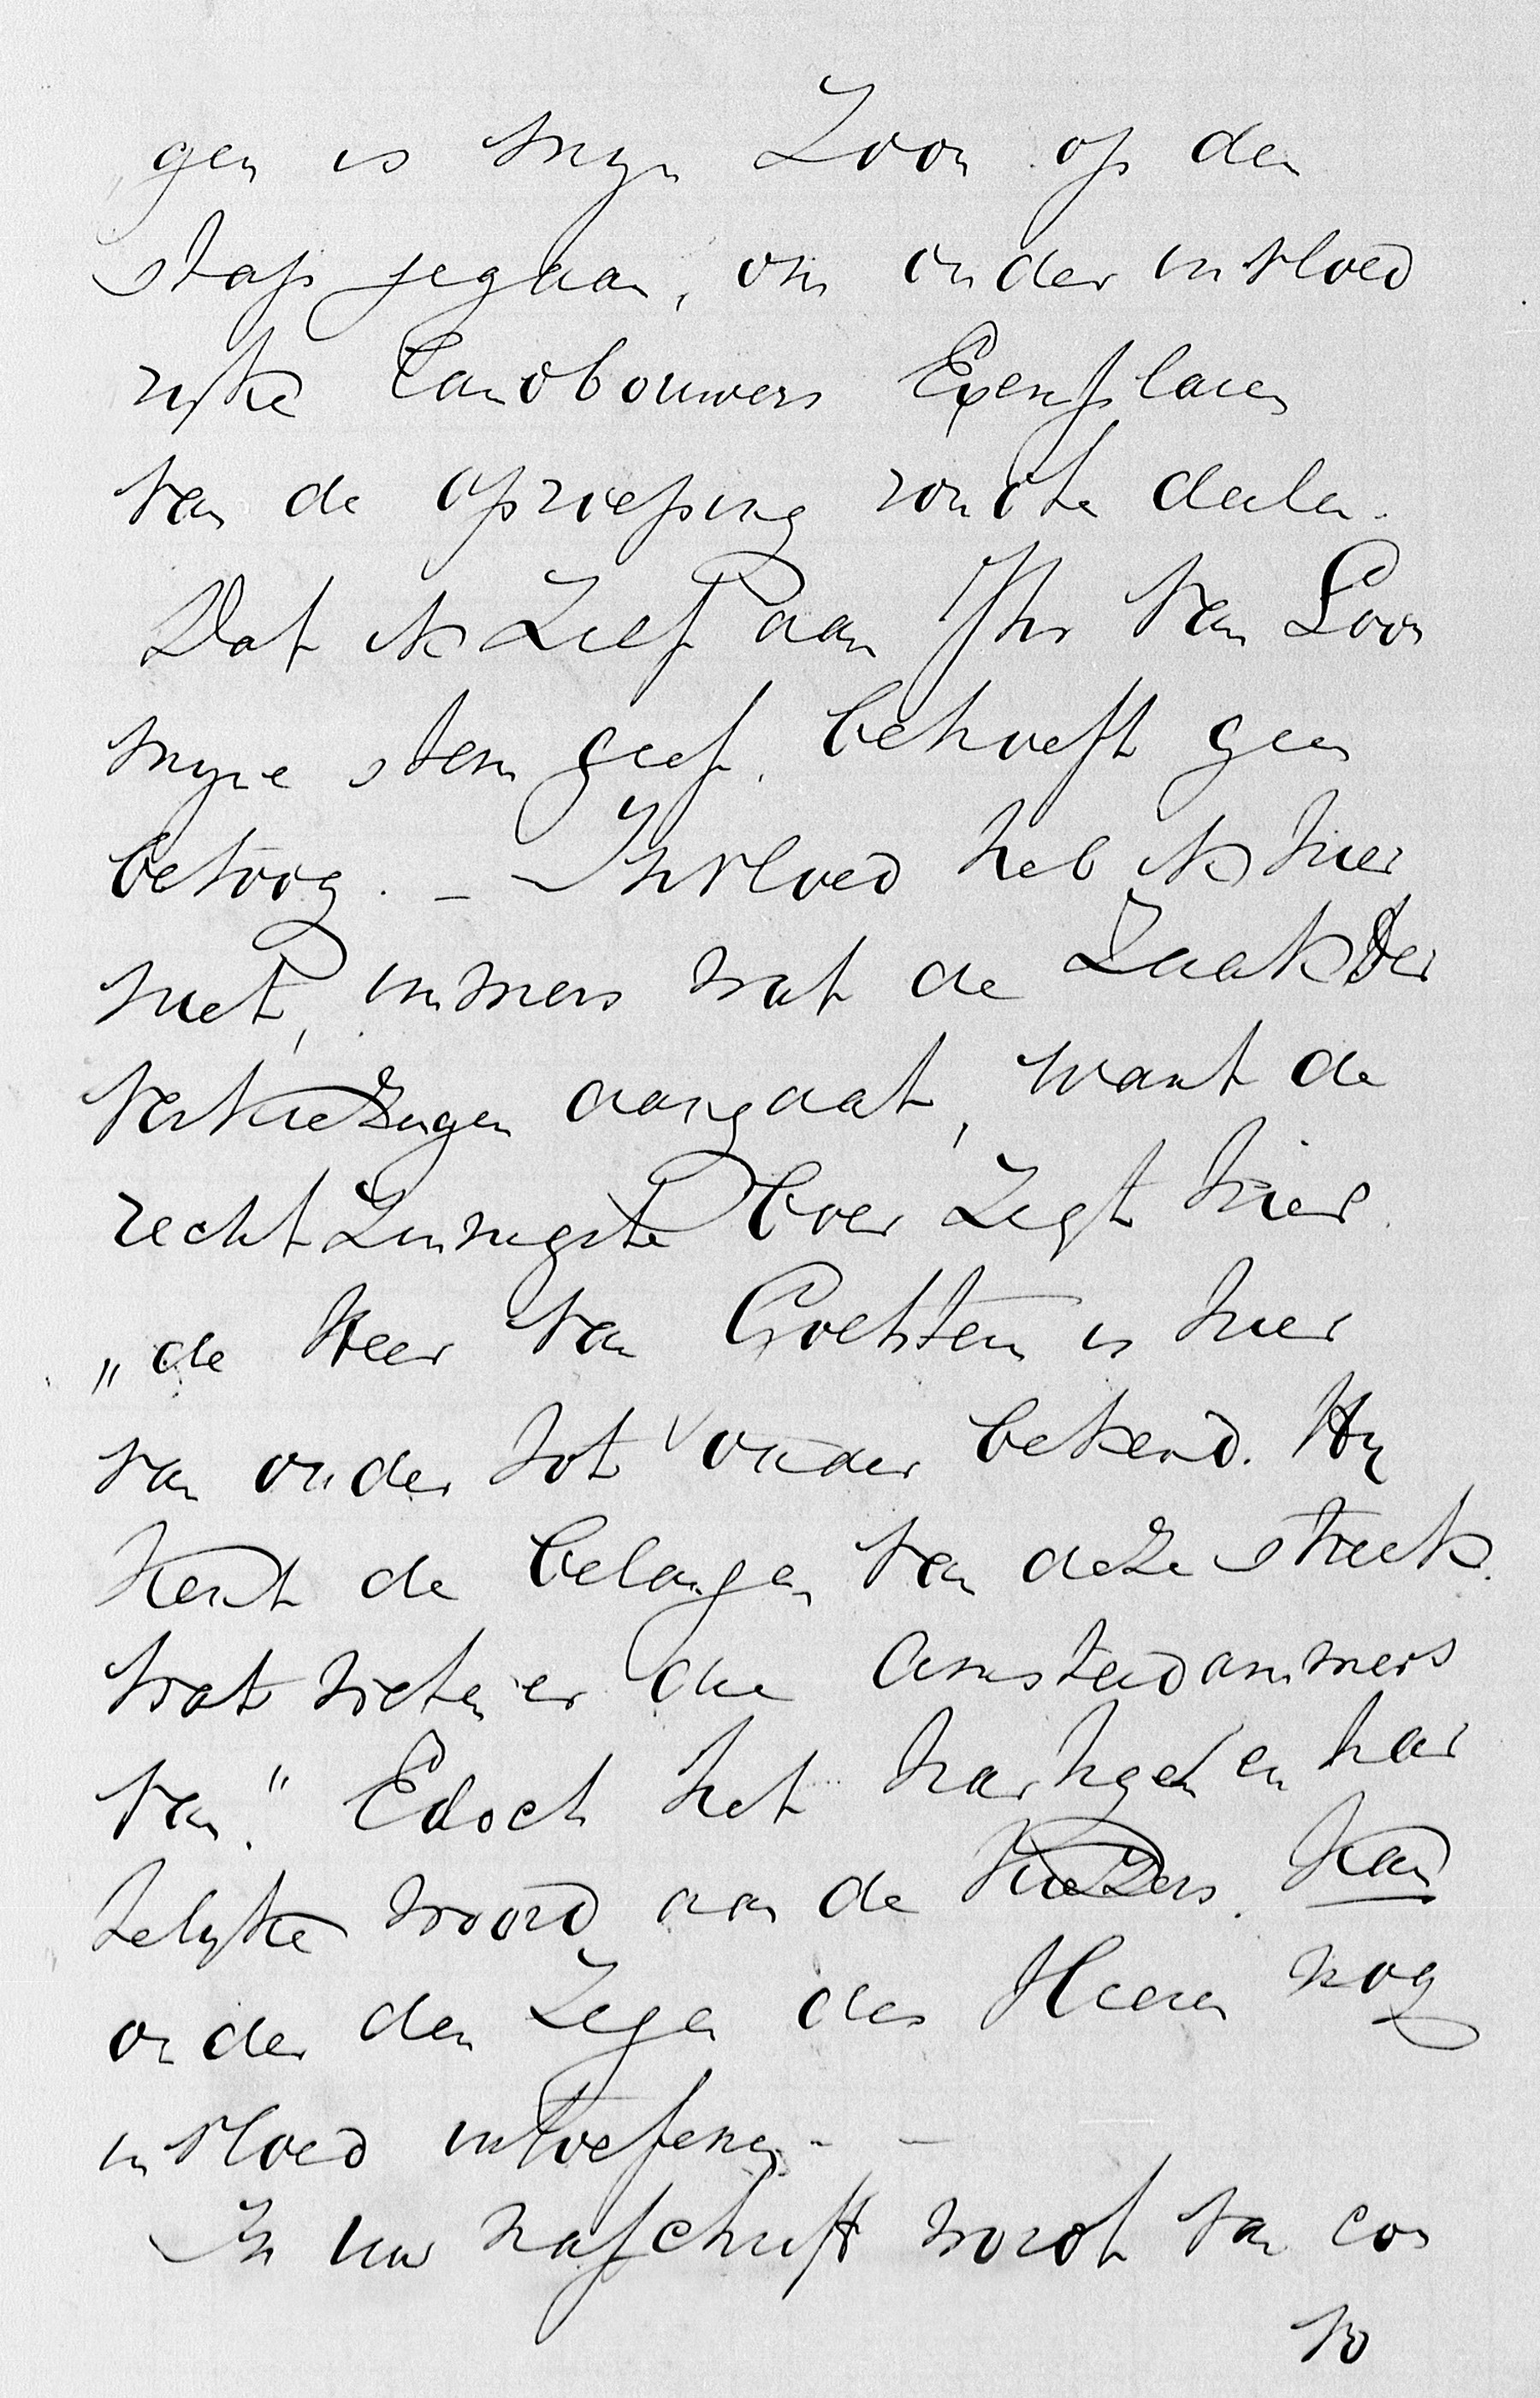 gen is myn Zoon op den
stap gegaan, om onder invloed
ryke landbouwers Exemplaren
van de oproeping rond te deelen.
Dat ik Zelf aan Jhr van Loon
myne stem geef, behoeft geen
betoog. – Invloed heb ik hier
niet, immers wat de Zaak der
verkiezingen aangaat, want de
recht Zinnigste boer Zegt hier
„de Heer van is hier
van onder tot onder bekend. Hy
kent de belangen van deze streek.
wat weten er die Amsterdammers
van." Edoch het har hgel en har
telyke woord aan de kiezers. kan
onder den Zegen des Heeren nog
invloed uitoefenen. –
In uw naschrift wordt van con
vo